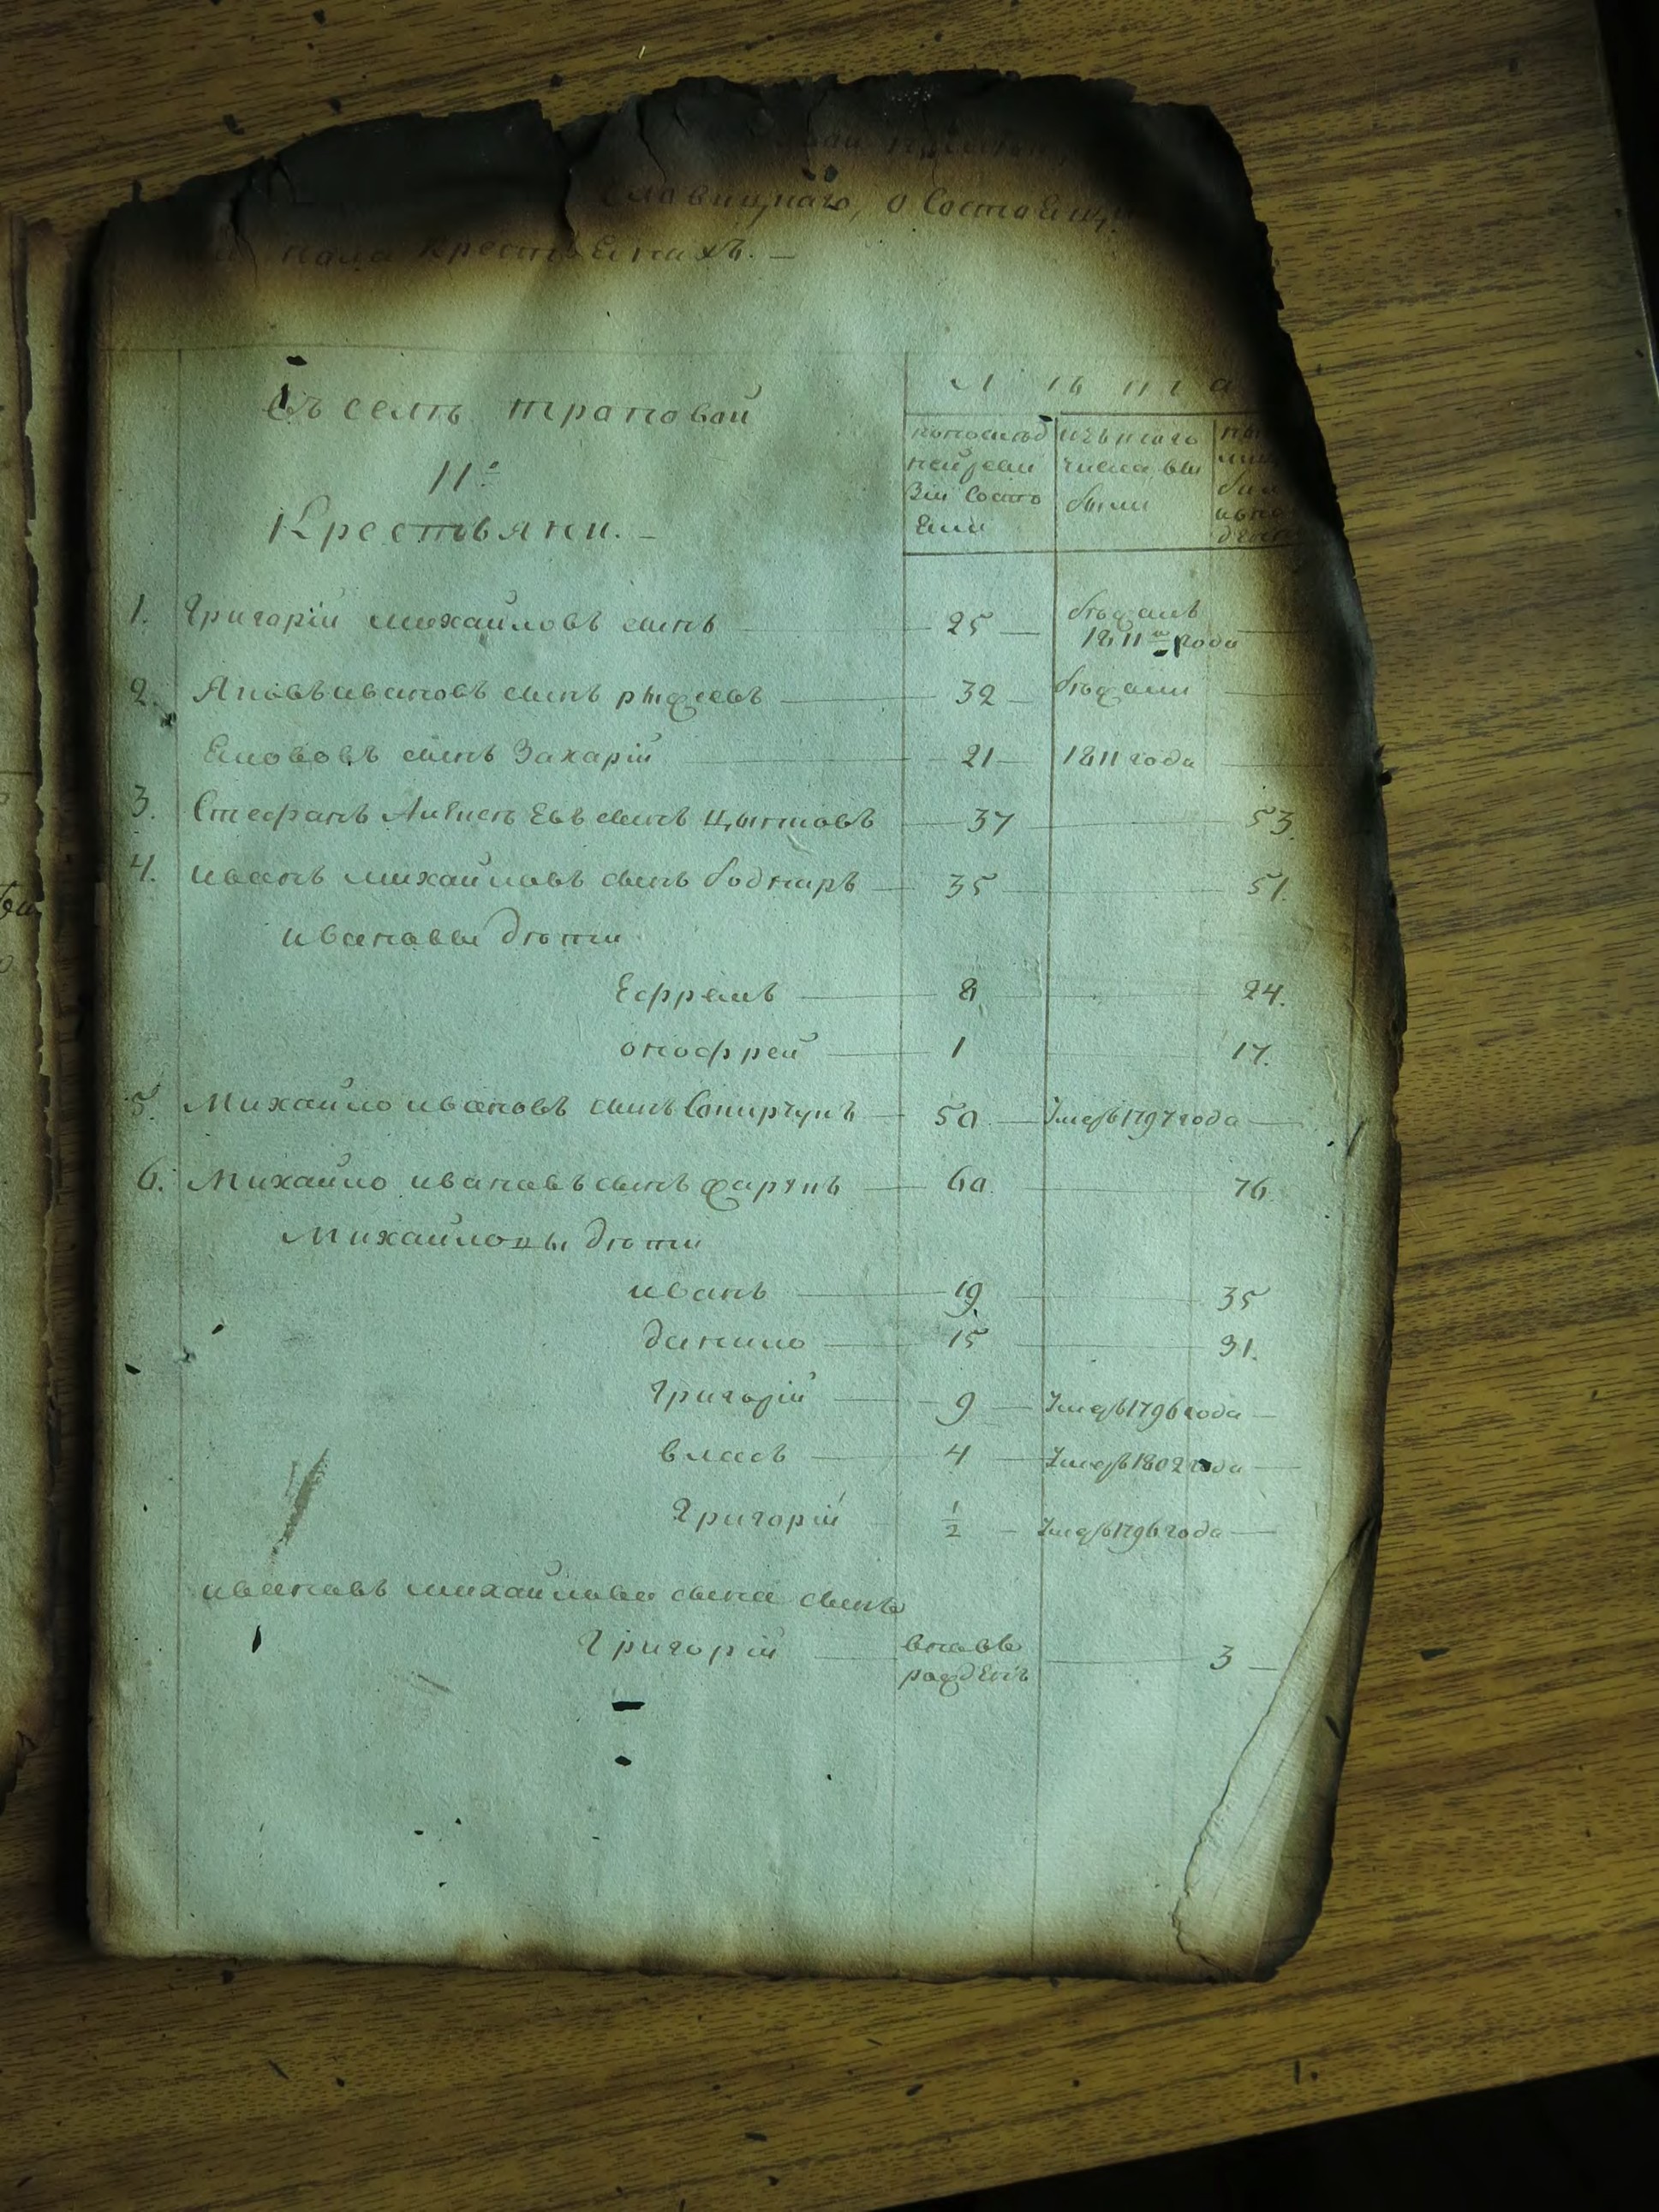 о состоящи
пола крестьянахъ. —
Въ селѣ траповой
Лѣта
11е
Крестьяни. —
по послѣд
ней реви
зіи состо
яли
изъ того
числа вы
были
1. Григорій михайловъ сынъ 25 бѣжалъ 1811го года
2. Яковъ ивановъ сынъ рыжеевъ 32 бѣжали
Яковъ сынъ Захарій 21 1811 года
3. Стефанъ Алексѣевъ сынъ 37 53.
4. иванъ михайловъ сынъ боднаръ 35 51.
ивановы дѣти
Ефремъ 8 24.
онофрей 1 17.
5. Михайло ивановъ сынъ 50 Умеръ 1797 года
6. Михайло ивановъ сынъ 60 76.
Михайловы дѣти
иванъ 19 35
данило 15 31.
Григорій 9 Умеръ 1796 года
власъ 4 Умеръ 1802 года
Григорій ½ Умеръ 1796 года
ивановъ михайлова сына сынъ
Григорій вновь рожденъ 3